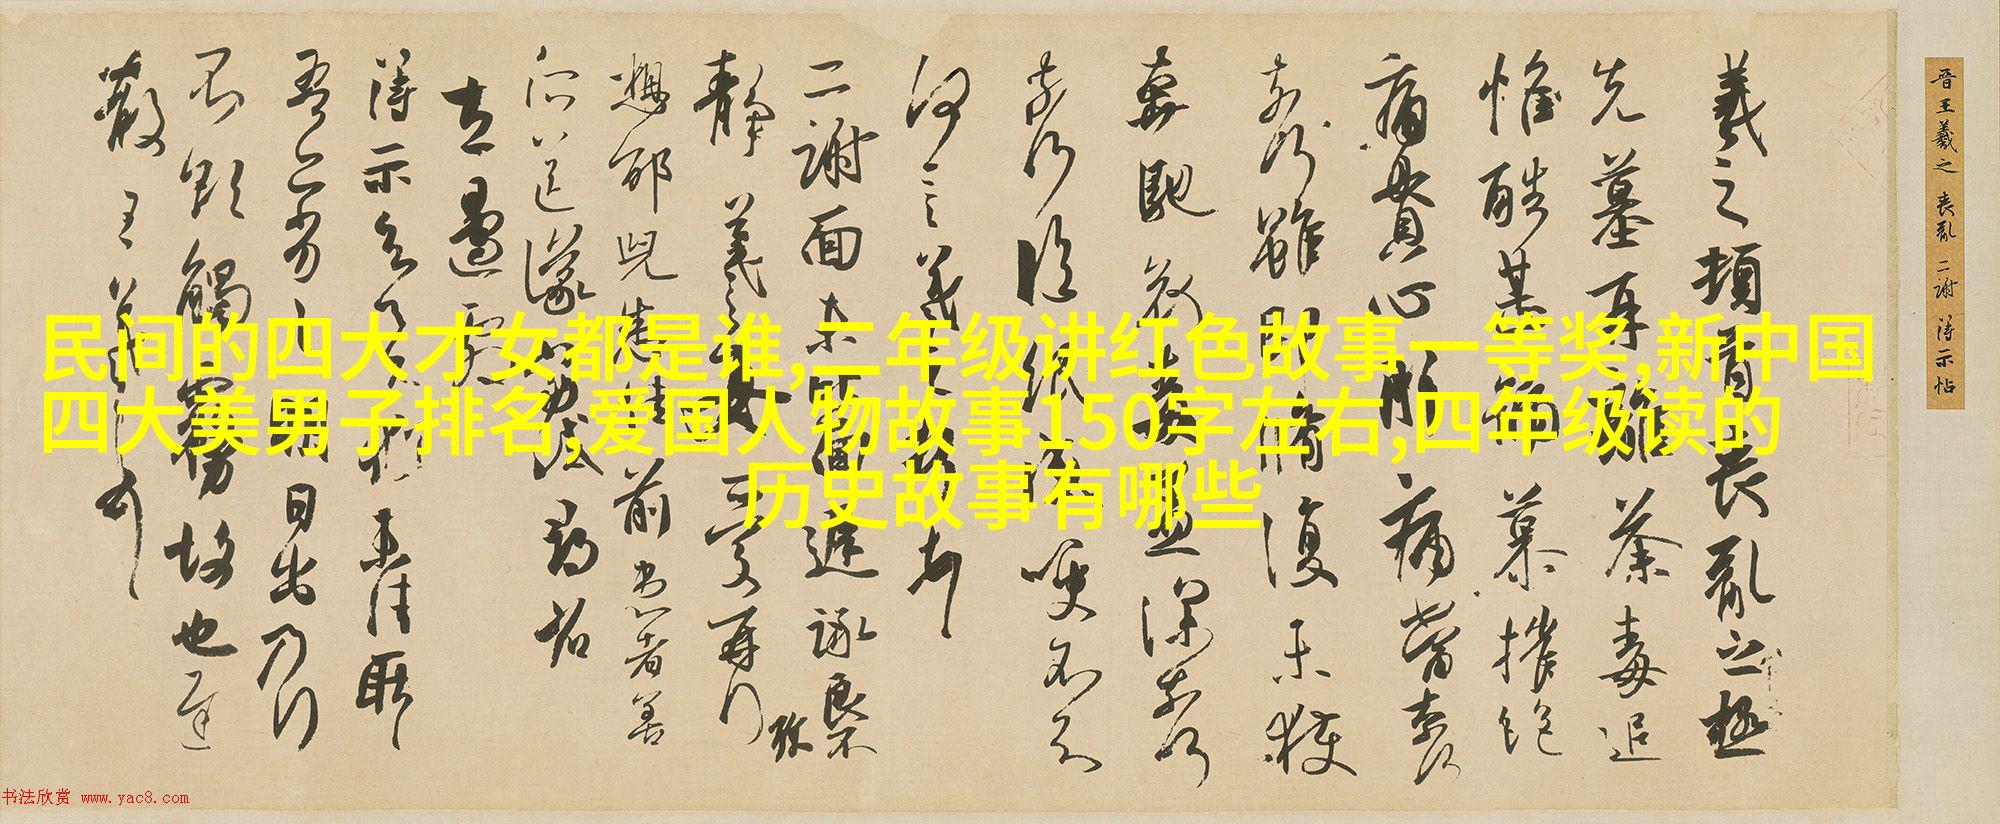 晉王羲之 喪亂 二謝 得示帖
羲之頓首喪亂之極
先墓再離荼毒追
惟酷甚號慕摧絕
痛貫心肝痛當奈何
奈何雖即脩復未獲
奔馳哀毒益深奈何
奈何臨紙感哽不知
何言羲之頓首頓首
二謝面未比面遲詠良不
靜羲之女愛再拜
想邵兒悉佳前患者善
所送議當試尋省
左邊劇
得示知足下猶未佳耿耿
吾亦劣劣明日出乃行
不欲觸霧故也遲
散王羲之頓首
民间的四大才女都是谁,二年级讲红色故事一等奖,新中国
四大美男子排名,爱国人物故事150字左右,四年级读的
历史故事有哪些
书法欣赏 www.yac8.com